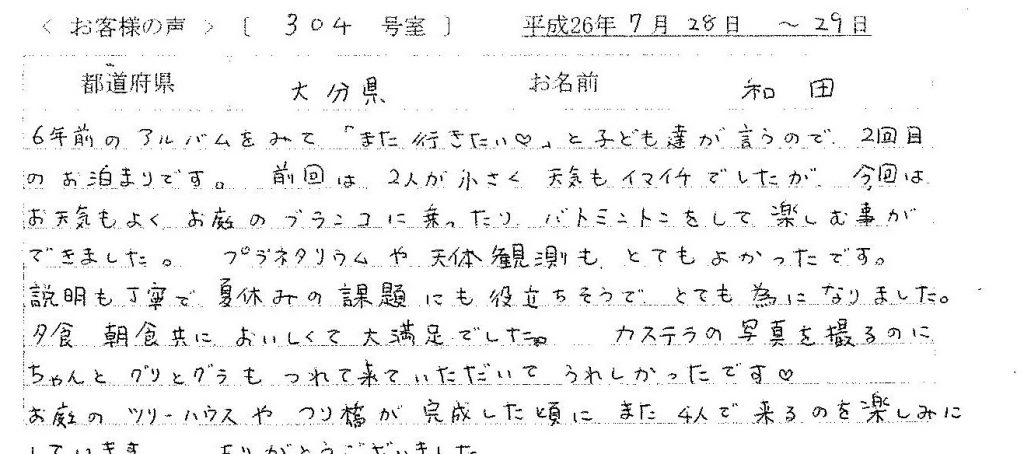 < お客様の声 > [ 304 号室 ] 平成26年 7月 28日 ～ 29日
都道府県 大分県 お名前 和田
6年前のアルバムをみて「また行きたい♡」と子ども達が言うので、2回目
のお泊まりです。 前回は 2人が小さく 天気もイマイチでしたが、今回は
お天気もよく お庭のブランコに乗ったり、バトミントンをして楽しむ事が
できました。 プラネタリウムや天体観測も、とてもよかったです。
説明も丁寧で夏休みの課題にも役立ちそうで、とても為になりました。
夕食 朝食共においしくて大満足でした。 カステラの写真を撮るのに
ちゃんとグリとグラもつれて来ていただいてうれしかったです♡
お庭のツリーハウスやつり橋が完成した頃にまた4人で来るのを楽しみに
しています。 ありがとうございました